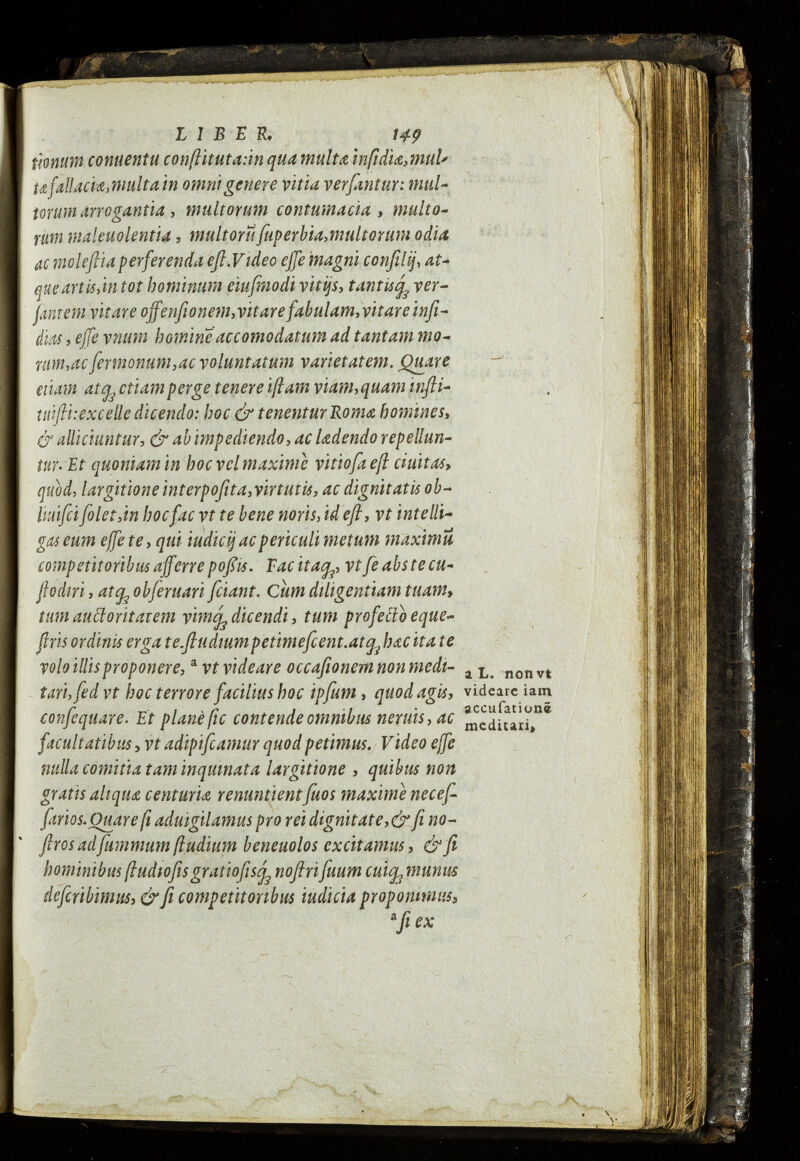 LIBER. 149
tionum conuentu conſtituta:in qua multæ inſidiæ,mul-
tæ fallaciæ,multa in omni genere vitia verſantur: mul-
torum arrogantia, multorum contumacia, multo-
rum maleuolentia, multorũ ſuperbia,multorum odia
ac moleſtia perferenda eſt.Video eſſe magni conſilij, at-
que artis,in tot hominum eiuſmodi vitijs, tantisq́; ver-
ſantem vitare offenſionem,vitare fabulam,vitare inſi-
dias, eſſe vnum hominẽ accomodatum ad tantam mo-
rum,ac ſermonum,ac voluntatum varietatem. Quare
etiam atq; etiam perge tenere iſtam viam,quam inſti-
tuiſti:excelle dicendo: hoc & tenentur Romæ homines,
& alliciuntur, & ab impediendo, ac lædendo repellun-
tur. Et quoniam in hoc vel maximè vitioſa eſt ciuitas,
quòd, largitione interpoſita,virtutis, ac dignitatis ob-
liuiſci ſolet,in hoc fac vt te bene noris, id eſt, vt intelli-
gas eum eſſe te, qui iudicij ac periculi metum maximũ
competitoribus afferre poßis. Fac itaq;, vt ſe abs te cu-
ſtodiri, atq; obſeruari ſciant. Cùm diligentiam tuam,
tum auctoritatem vimq́; dicendi, tum profectò eque-
ſtris ordinis erga te.ſtudium petimeſcent.atq; hæc ita te
volo illis proponere, ª vt videare occaſionem non medi-
tari,ſed vt hoc terrore facilius hoc ipſum, quod agis,
conſequare. Et planè ſic contende omnibus neruis, ac
facultatibus, vt adipiſcamur quod petimus. Video eſſe
nulla comitia tam inquinata largitione, quibus non
gratis aliquæ centuriæ renuntient ſuos maximè neceſ-
ſarios. Quare ſi aduigilamus pro rei dignitate,& ſi no-
ſtros ad ſummum ſtudium beneuolos excitamus, & ſi
hominibus ſtudioſis gratioſisq́; noſtri ſuum cuiq; munus
deſcribimus, & ſi competitoribus iudicia proponimus,
ª ſi ex
a L. non vt
videare iam
accuſationẽ
meditari,